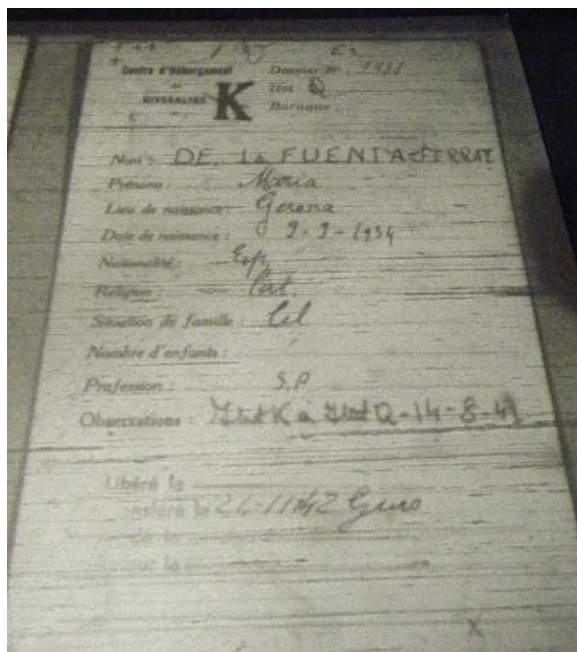 Centre d'Hébergement Dossier N° 1931
de Ilot Q
RIVESALTES K Baraque :
Nom : DE LA FUENTA FERRAT
Prénoms Maria
Lieu de naissance : Gerona
Date de naissance : 9-9-1934
Nationalité : Esp.
Religion : Cat.
Situation de famille : Cel
Nombre d'enfants :
Profession : S.P
Observations : Ilot K à Ilot Q-14-8-41
Libéré le
nsféré le 24-11-42 Gurs
X